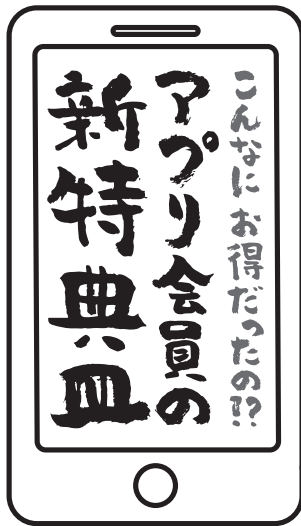 こんなにお得だったの!?
アプリ会員の
新特典皿